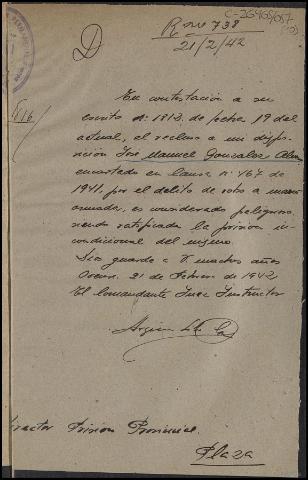 C-26468/057
R no 738
21/2/42
D
§ 16
En contestación a su
escrito nº 1812 de fecha 19 del
actual, el recluso a mi dispo-
sición José Manuel Gonzalez
encartado en causa nº 467 de
1941, por el delito de robo a mano
armada, es considerado peligroso,
siendo ratificada la prision in-
condicional del mismo.
Dios guarde a V. muchos años
21 de Febrero de 1942
El Comandante Juez Instructor
Director Prision Provincial.
Plaza